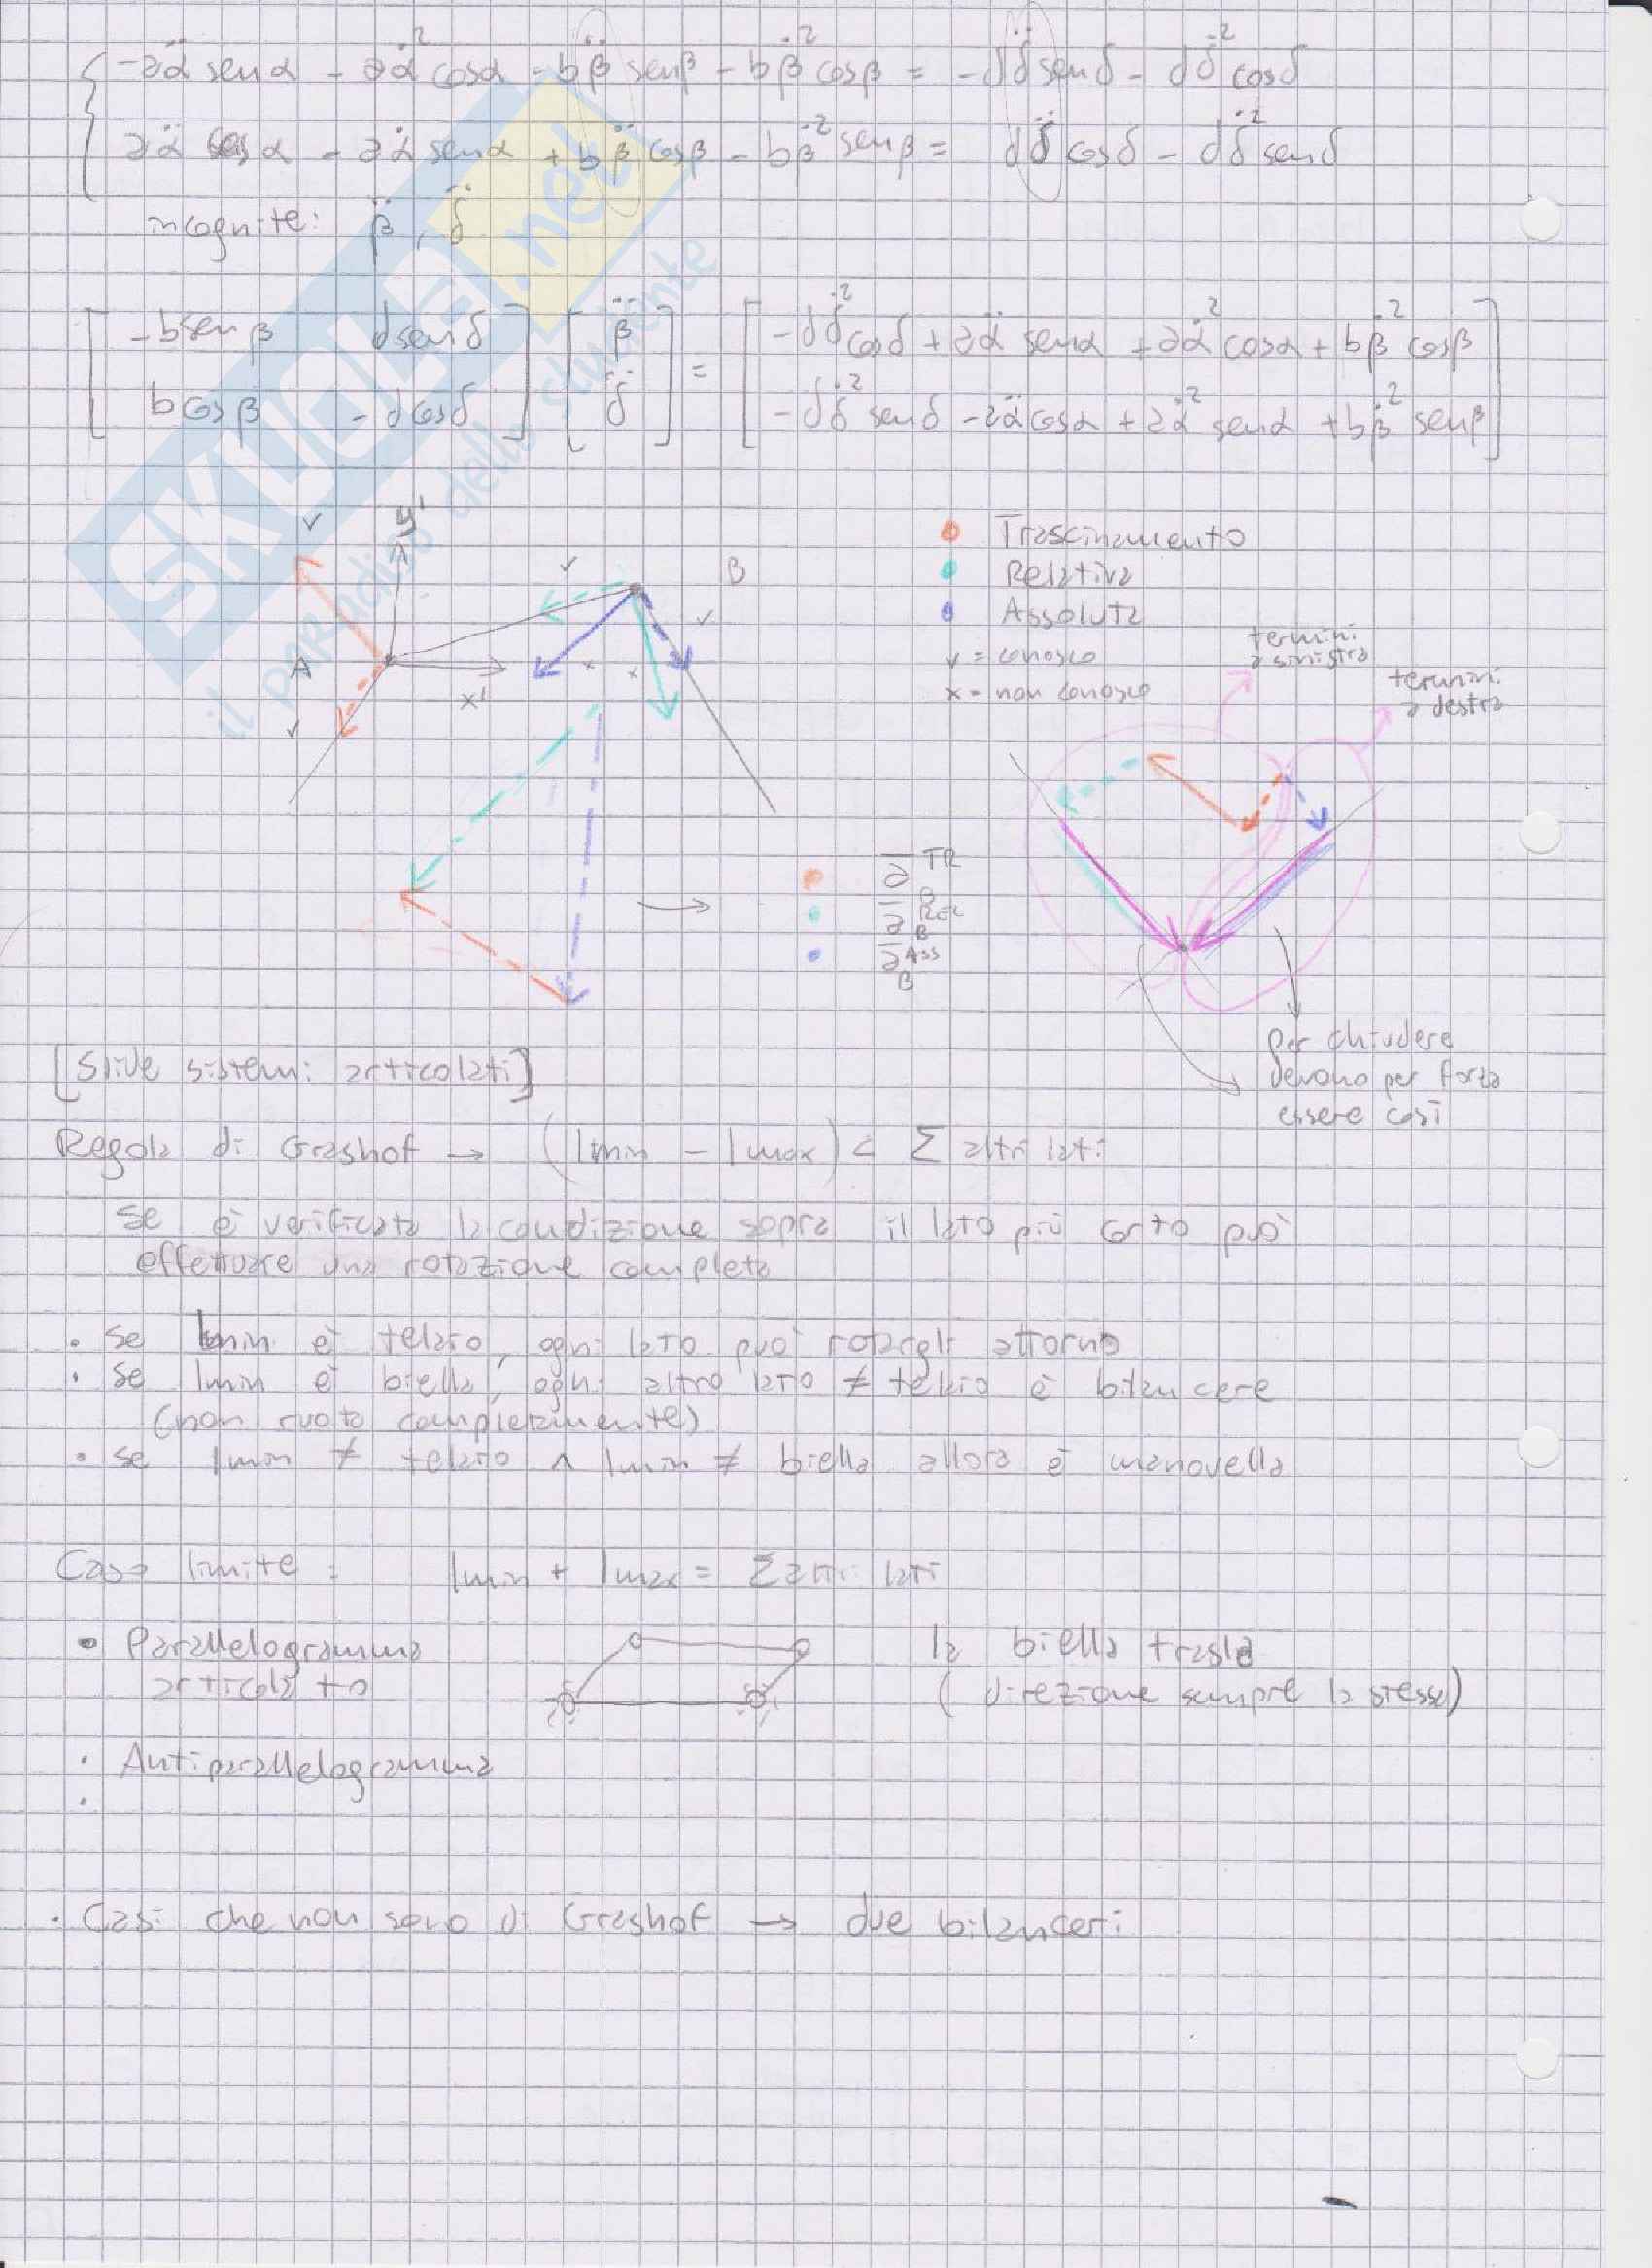 -aα̈ senα - aα̇² cosα - bβ̈ senβ - bβ̇² cosβ = -dδ̈ senδ - dδ̇² cosδ
aα̈ cosα - aα̇² senα + bβ̈ cosβ - bβ̇² senβ = dδ̈ cosδ - dδ̇² senδ
incognite: β̈, δ̈
[-bsenβ dsenδ] [β̈] = [-dδ̇² cosδ + aα̈ senα + aα̇² cosα + bβ̇² cosβ]
[bcosβ -dcosδ] [δ̈] [-dδ̇² senδ - aα̈ cosα + aα̇² senα + bβ̇² senβ]
SKUOLA.net
il paradiso dello studente
y'
A
x'
B
Trascinamento
Relativa
Assoluta
v = conosco
x = non conosco
termini
a sinistra
termini
a destra
a_B^TR
a_B^Rel
a_B^Ass
per chiudere
devono per forza
essere così
[slide sistemi articolati]
Regola di Grashof → (lmin - lmax) < Σ altri lati
se è verificata la condizione sopra il lato più corto può
effettuare una rotazione completa
. se lmin è telaio, ogni lato può rotargli attorno
. se lmin è biella, ogni altro lato ≠ telaio è bilancere
(non ruota completamente)
. se lmin ≠ telaio ∧ lmin ≠ biella allora è manovella
Caso limite : lmin + lmax = Σ altri lati
• Parallelogramma
articolato
la biella trasla
(direzione sempre la stessa)
. Antiparallelogramma
.
. Casi che non sono di Grashof → due bilanceri